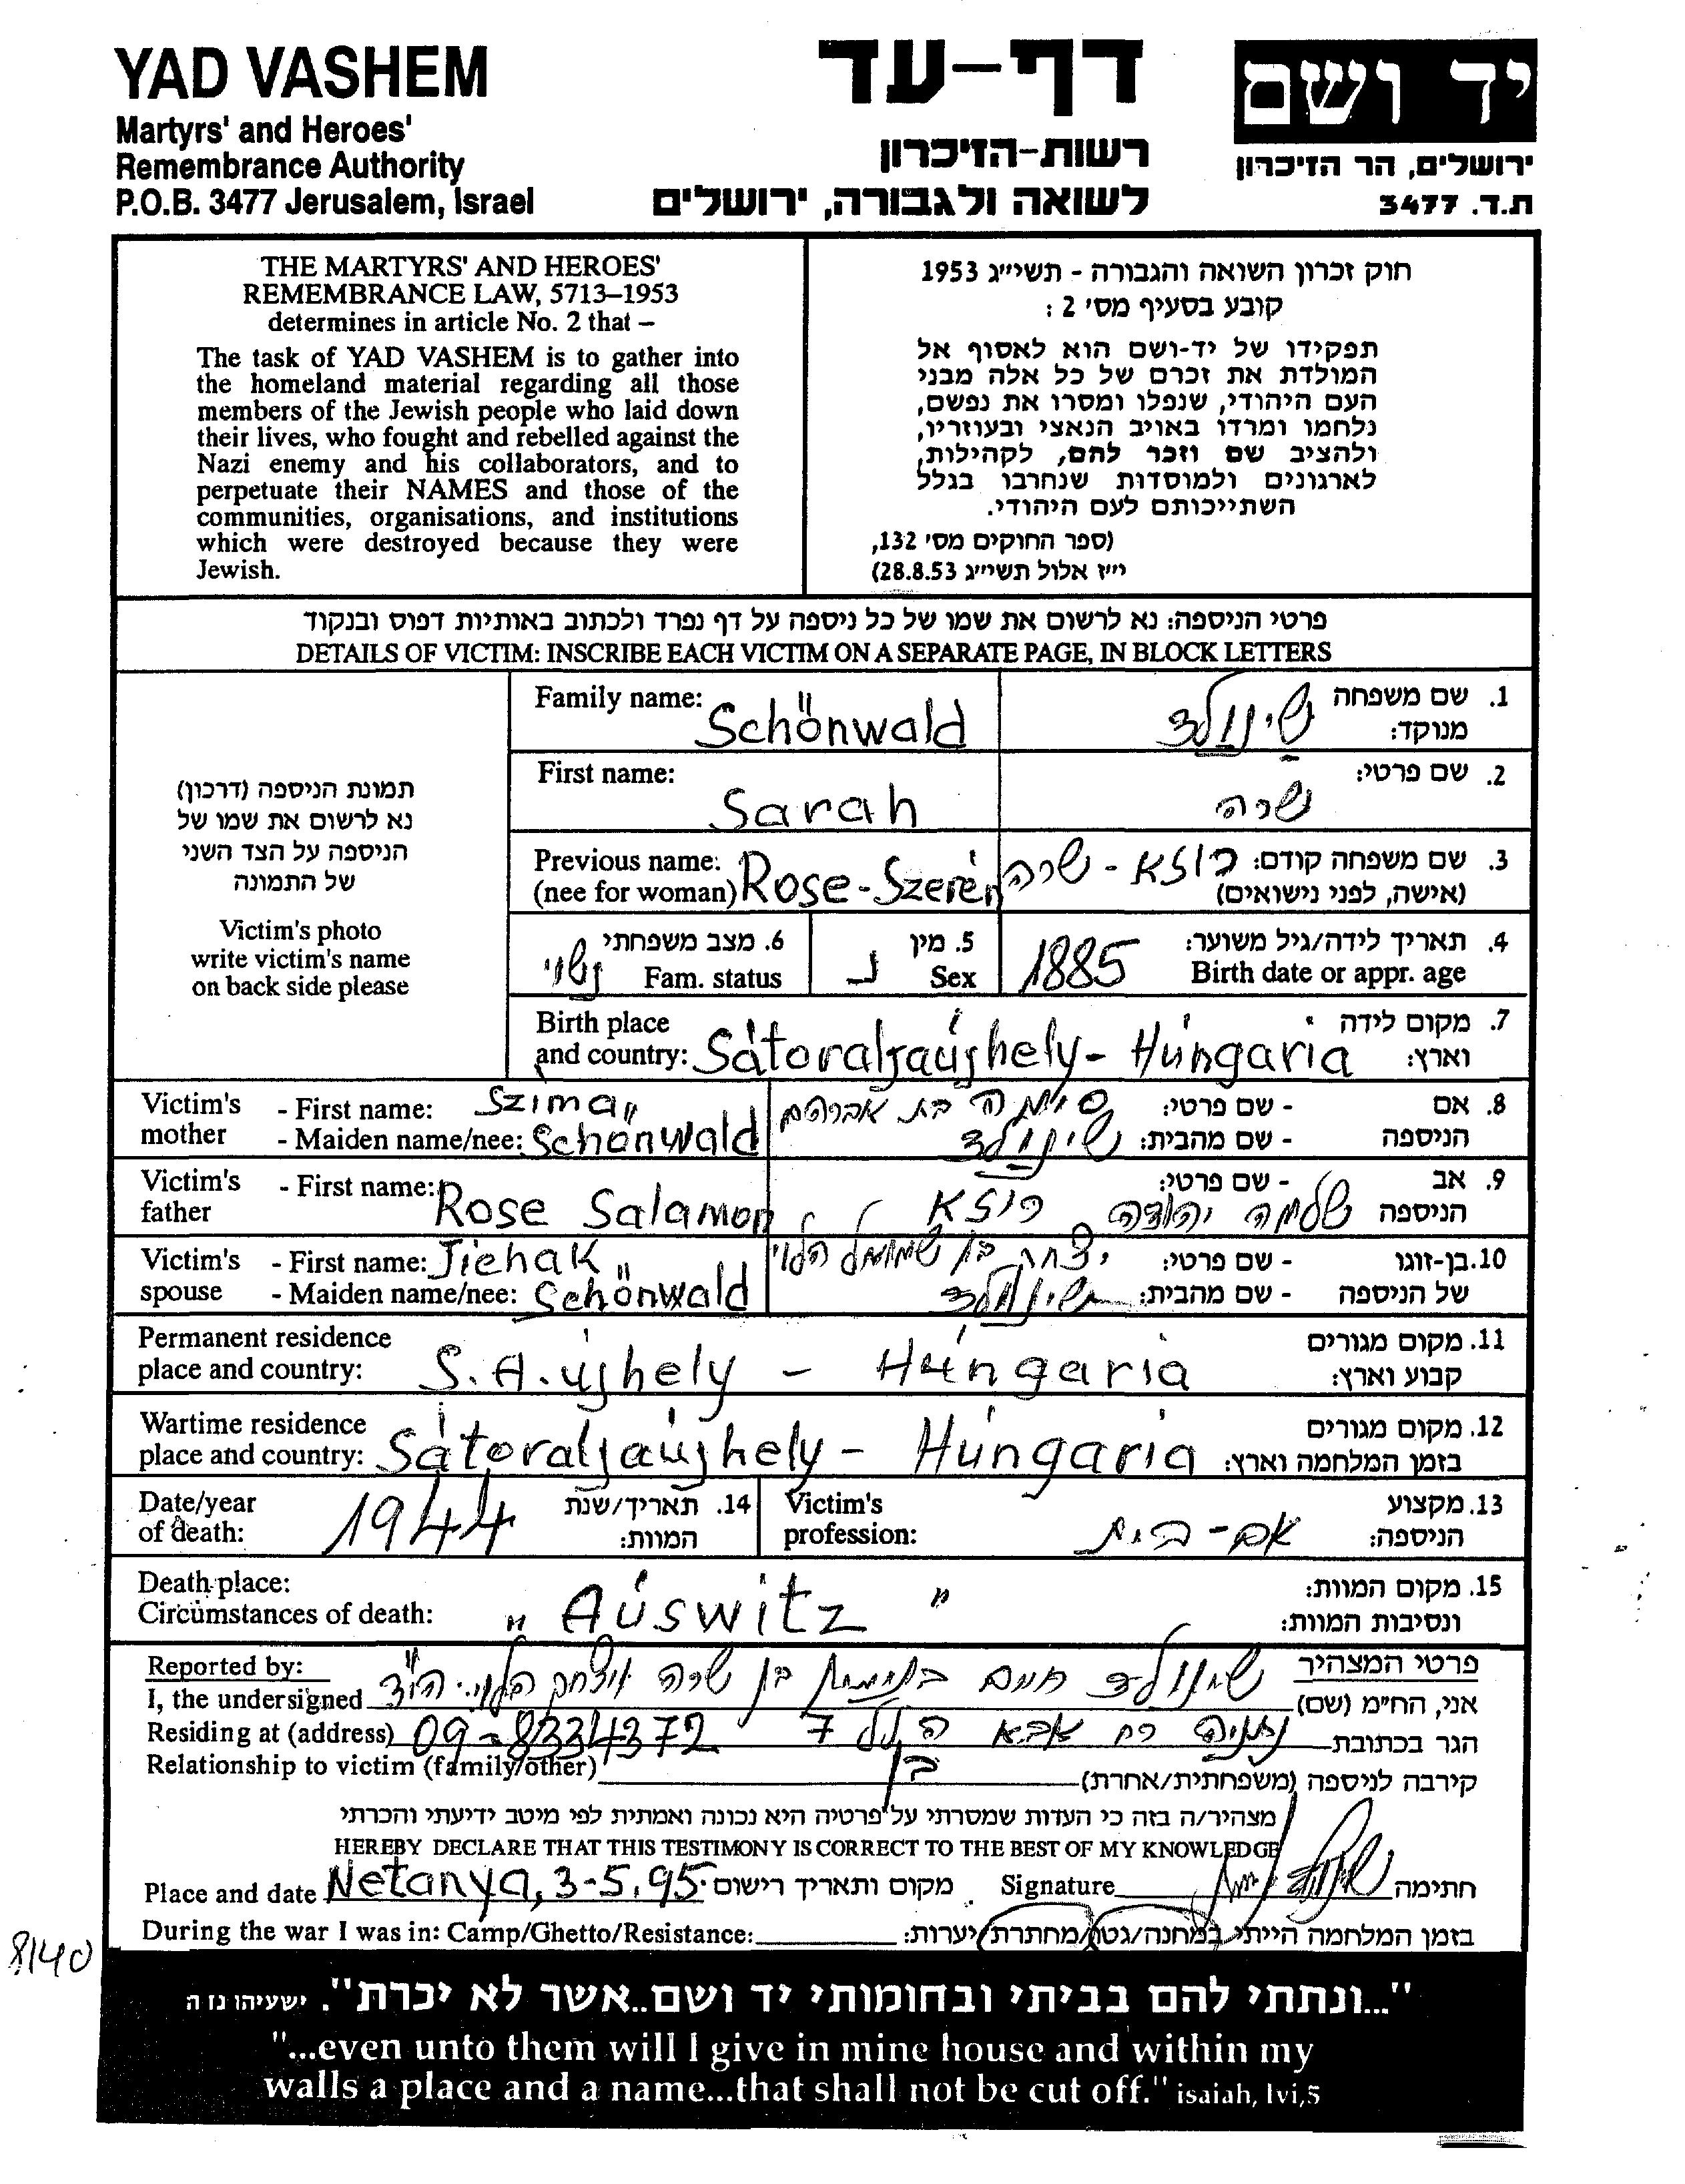 YAD VASHEM
Martyrs' and Heroes'
Remembrance Authority
P.O.B. 3477 Jerusalem, Israel
דף-עד
רשות-הזיכרון
לשואה ולגבורה, ירושלים
יד ושם
ירושלים, הר הזיכרון
ת.ד. 3477
THE MARTYRS' AND HEROES'
REMEMBRANCE LAW, 5713–1953
determines in article No. 2 that –
The task of YAD VASHEM is to gather into
the homeland material regarding all those
members of the Jewish people who laid down
their lives, who fought and rebelled against the
Nazi enemy and his collaborators, and to
perpetuate their NAMES and those of the
communities, organisations, and institutions
which were destroyed because they were
Jewish.
חוק זכרון השואה והגבורה - תשי״ג 1953
קובע בסעיף מס' 2 :
תפקידו של יד-ושם הוא לאסוף אל
המולדת את זכרם של כל אלה מבני
העם היהודי, שנפלו ומסרו את נפשם,
נלחמו ומרדו באויב הנאצי ובעוזריו,
ולהציב שם וזכר להם, לקהילות,
לארגונים ולמוסדות שנחרבו בגלל
השתייכותם לעם היהודי.
(ספר החוקים מס' 132,
י״ז אלול תשי״ג 28.8.53)
פרטי הניספה: נא לרשום את שמו של כל ניספה על דף נפרד ולכתוב באותיות דפוס ובנקוד
DETAILS OF VICTIM: INSCRIBE EACH VICTIM ON A SEPARATE PAGE, IN BLOCK LETTERS
תמונת הניספה (דרכון)
נא לרשום את שמו של
הניספה על הצד השני
של התמונה
Victim's photo
write victim's name
on back side please
Family name: Schönwald שינולד 1. שם משפחה
מנוקד:
First name: Sarah שרה 2. שם פרטי:
Previous name: Rose-Szerén רוזא - שרה 3. שם משפחה קודם:
(nee for woman) (אישה, לפני נישואים)
נשוי 6. מצב משפחתי
Fam. status
נ 5. מין
Sex
1885 4. תאריך לידה/גיל משוער:
Birth date or appr. age
Birth place 7. מקום לידה
and country: Sátoraljaújhely - Húngaria וארץ:
Victim's - First name: Szima סימה בת אברהם - שם פרטי: 8. אם
mother - Maiden name/nee: Schönwald שינולד - שם מהבית: הניספה
Victim's - First name: Rose Salamon רוזא - שם פרטי: 9. אב
father שלמה יהודה הניספה
Victim's - First name: Jichak יצחק בן שמואל הלוי - שם פרטי: 10. בן-זוגו
spouse - Maiden name/nee: Schönwald שינולד - שם מהבית: של הניספה
Permanent residence 11. מקום מגורים
place and country: S.A. újhely - Húngaria קבוע וארץ:
Wartime residence 12. מקום מגורים
place and country: Sátoraljaújhely - Húngaria בזמן המלחמה וארץ:
Date/year 1944 14. תאריך/שנת
of death: המוות:
Victim's 13. מקצוע
profession: אם-בית הניספה:
Death place: 15. מקום המוות:
Circumstances of death: " Aúswitz " ונסיבות המוות:
Reported by: פרטי המצהיר
I, the undersigned שינולד חיים בן שרה ויצחק הלוי הי"ד אני, הח״מ (שם)
Residing at (address) 09-8334372 נתניה רח אבא הלל 7 הגר בכתובת
Relationship to victim (family/other) בן קירבה לניספה (משפחתית/אחרת)
מצהיר/ה בזה כי העדות שמסרתי על פרטיה היא נכונה ואמתית לפי מיטב ידיעתי והכרתי
HEREBY DECLARE THAT THIS TESTIMONY IS CORRECT TO THE BEST OF MY KNOWLEDGE
Place and date Netanya, 3-5.95. מקום ותאריך רישום Signature שינולד חתימה
During the war I was in: Camp/Ghetto/Resistance: בזמן המלחמה הייתי במחנה/גטו/מחתרת/יערות:
8140
"...ונתתי להם בביתי ובחומותי יד ושם..אשר לא יכרת". ישעיהו נו ה
"...even unto them will I give in mine house and within my
walls a place and a name...that shall not be cut off." isaiah, lvi,5